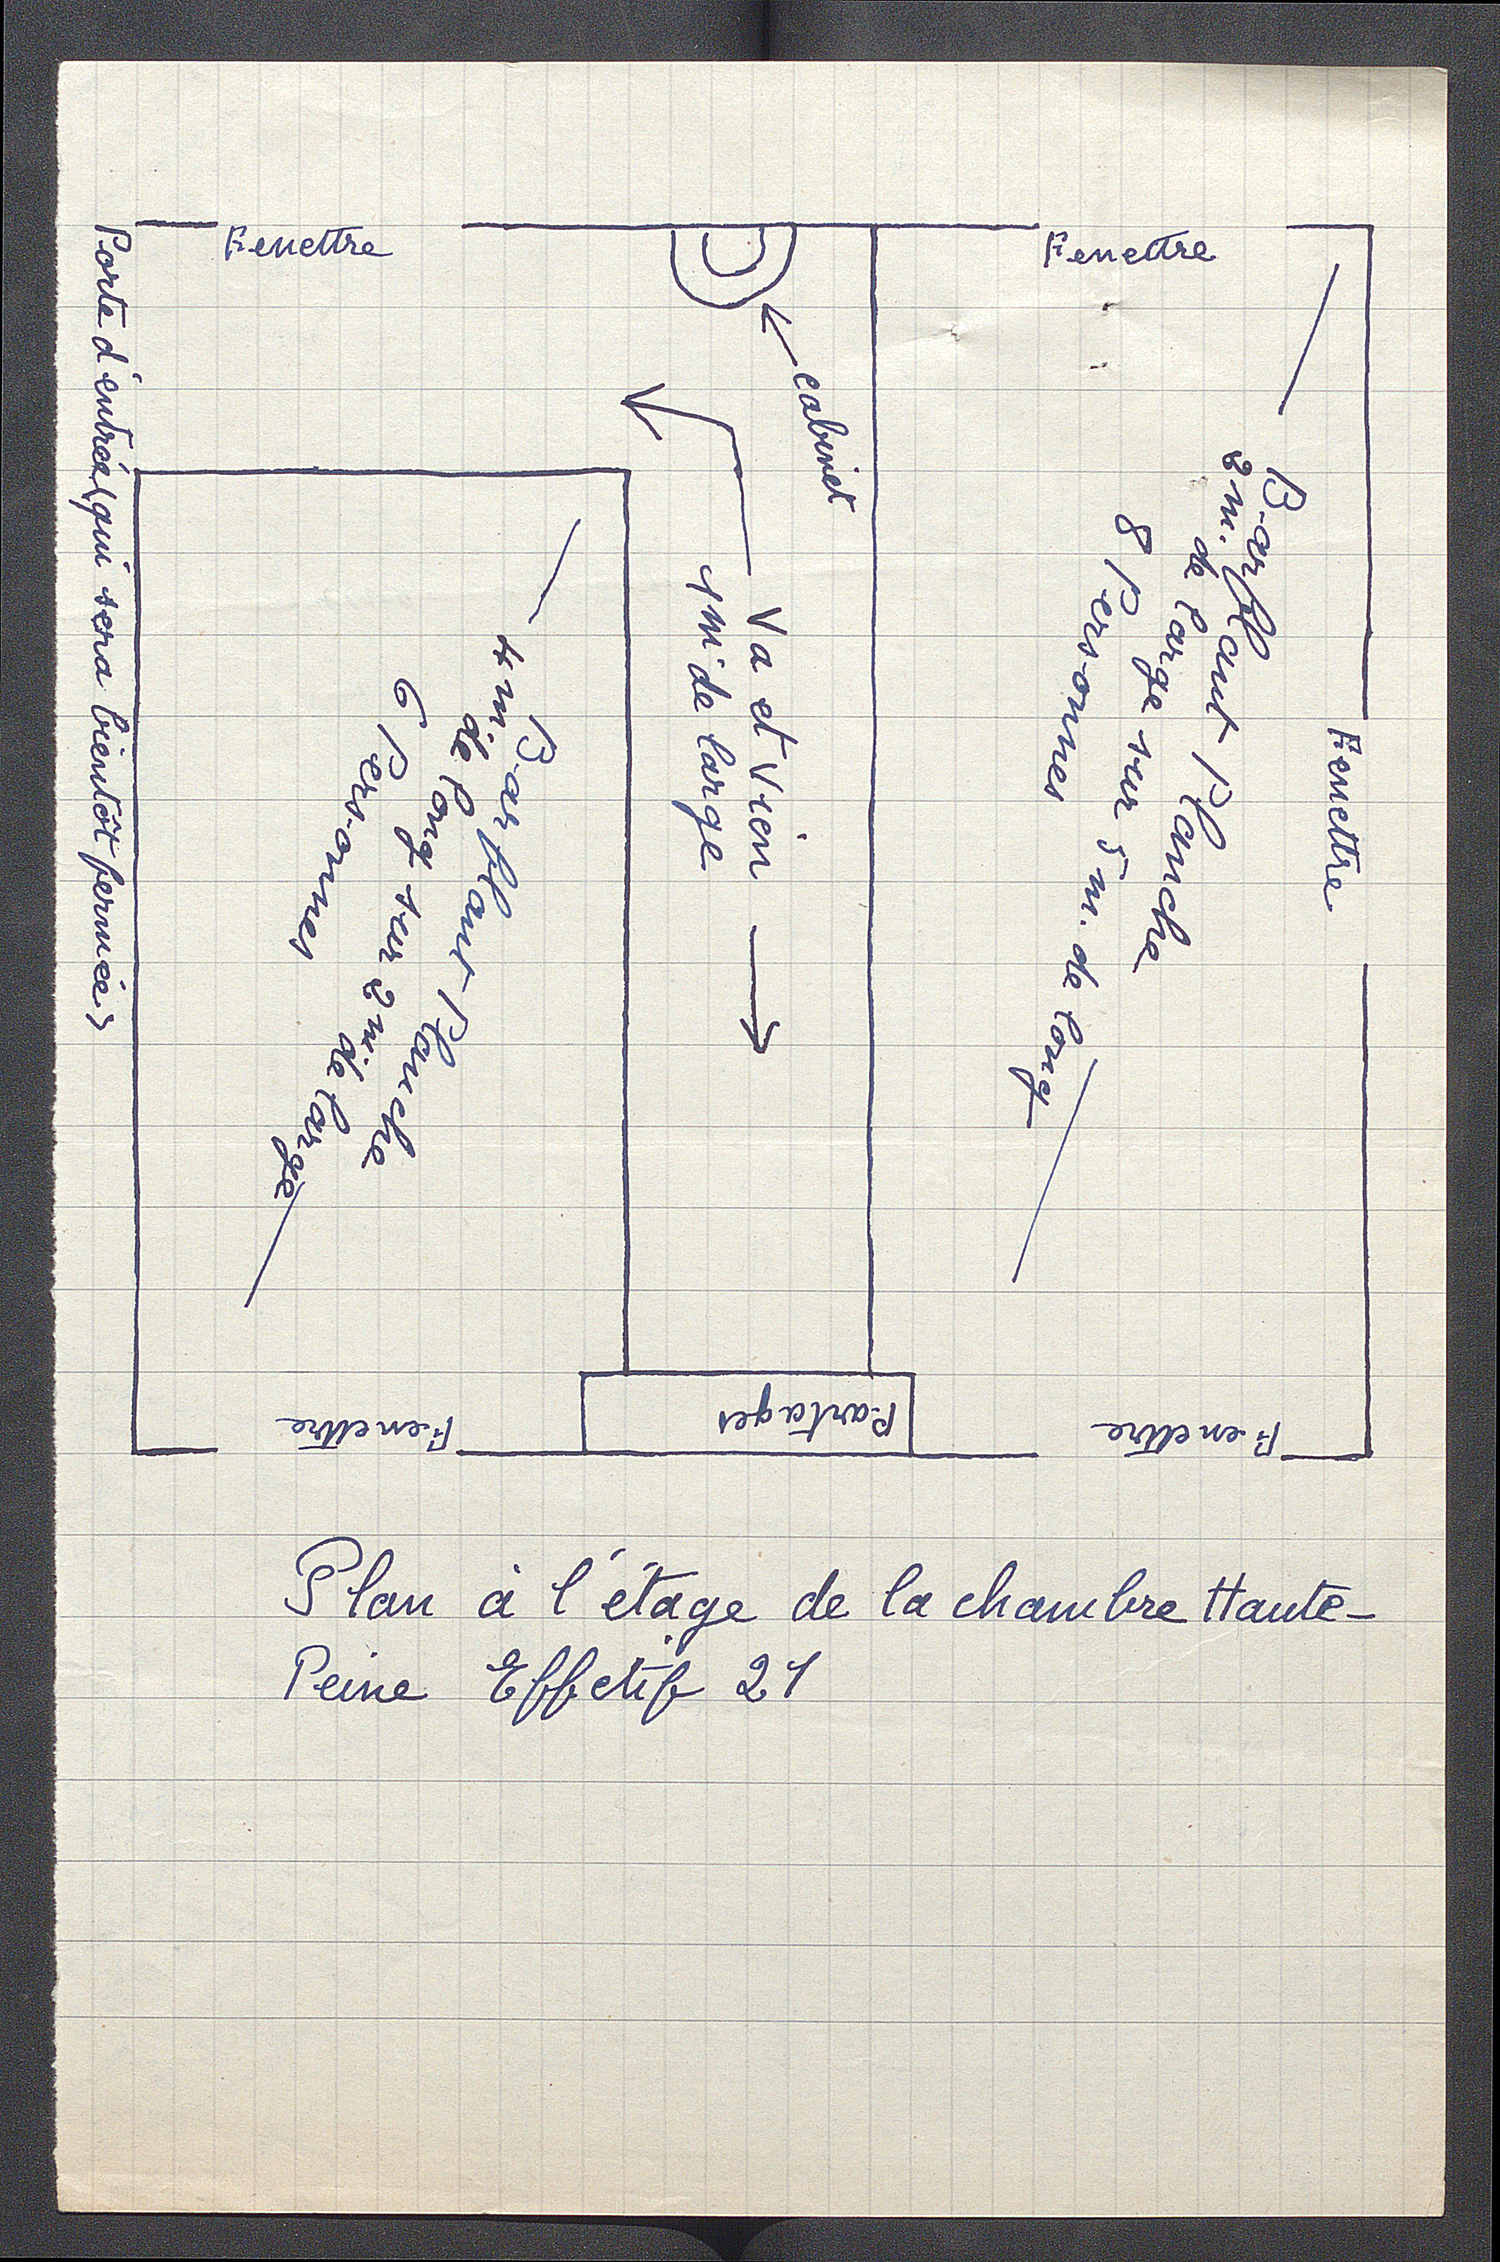 Fenettre
Fenettre
Porte d'entrée (qui sera bientôt fermée)
cabinet
Va et Vien
1 m. de large
Bas-flanc Planche
2 m. de large sur 5 m. de long
8 Personnes
Fenettre
Bas-flanc Planche
4 m. de long sur 2 m. de large
6 Personnes
Fenettre
Partages
Fenettre
Plan à l'étage de la chambre Haute-
Peine Effectif 21